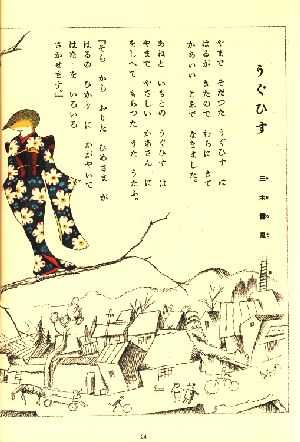 うぐひす
三木露風
やまで そだつた うぐひす は
はるが きたので むらに きて
かあいい こゑで なきました。
あねと いもとの うぐひす は
やまで やさしい かあさん に
をしへて もらつた うた うたふ。
『そら から おりた ひめさま が
はるの ひかり に かがやいて
はな を いろいろ
さかせます。』
14